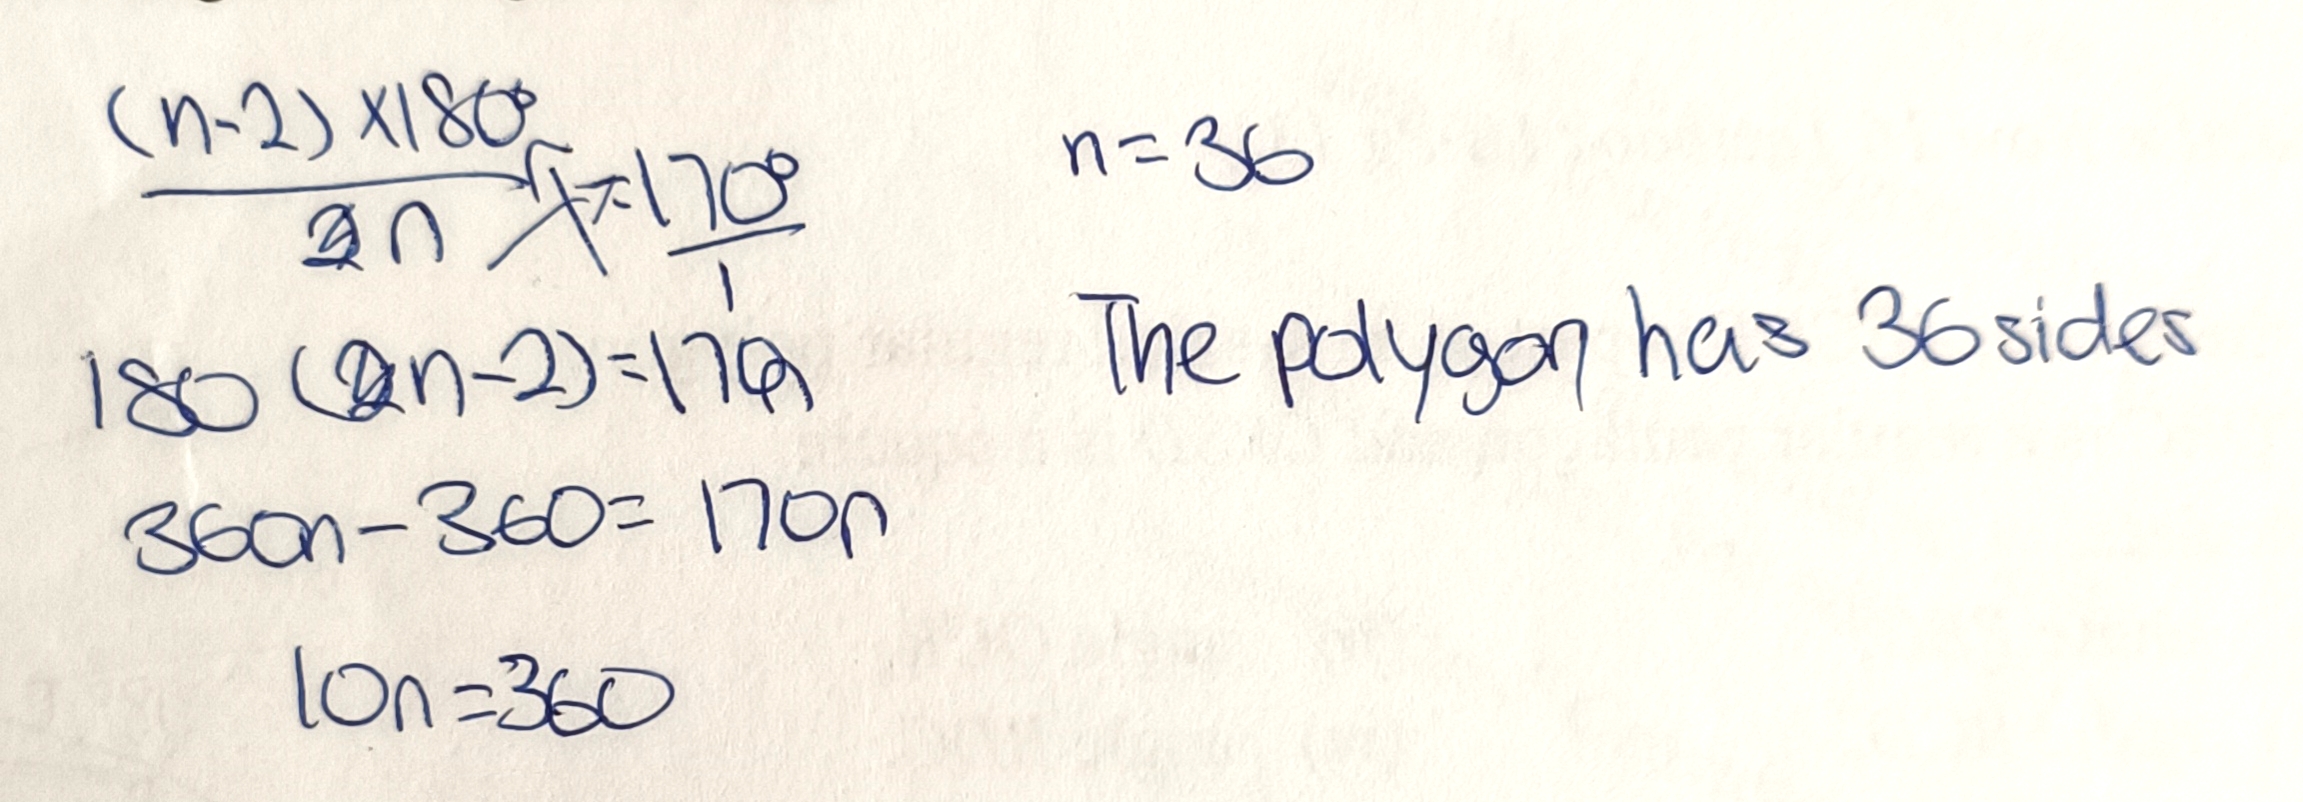 (n-2) ×180°
2n
=170°
1
180 (2n-2)=170n
360n-360= 170n
10n=360
n=36
The polygon has 36 sides